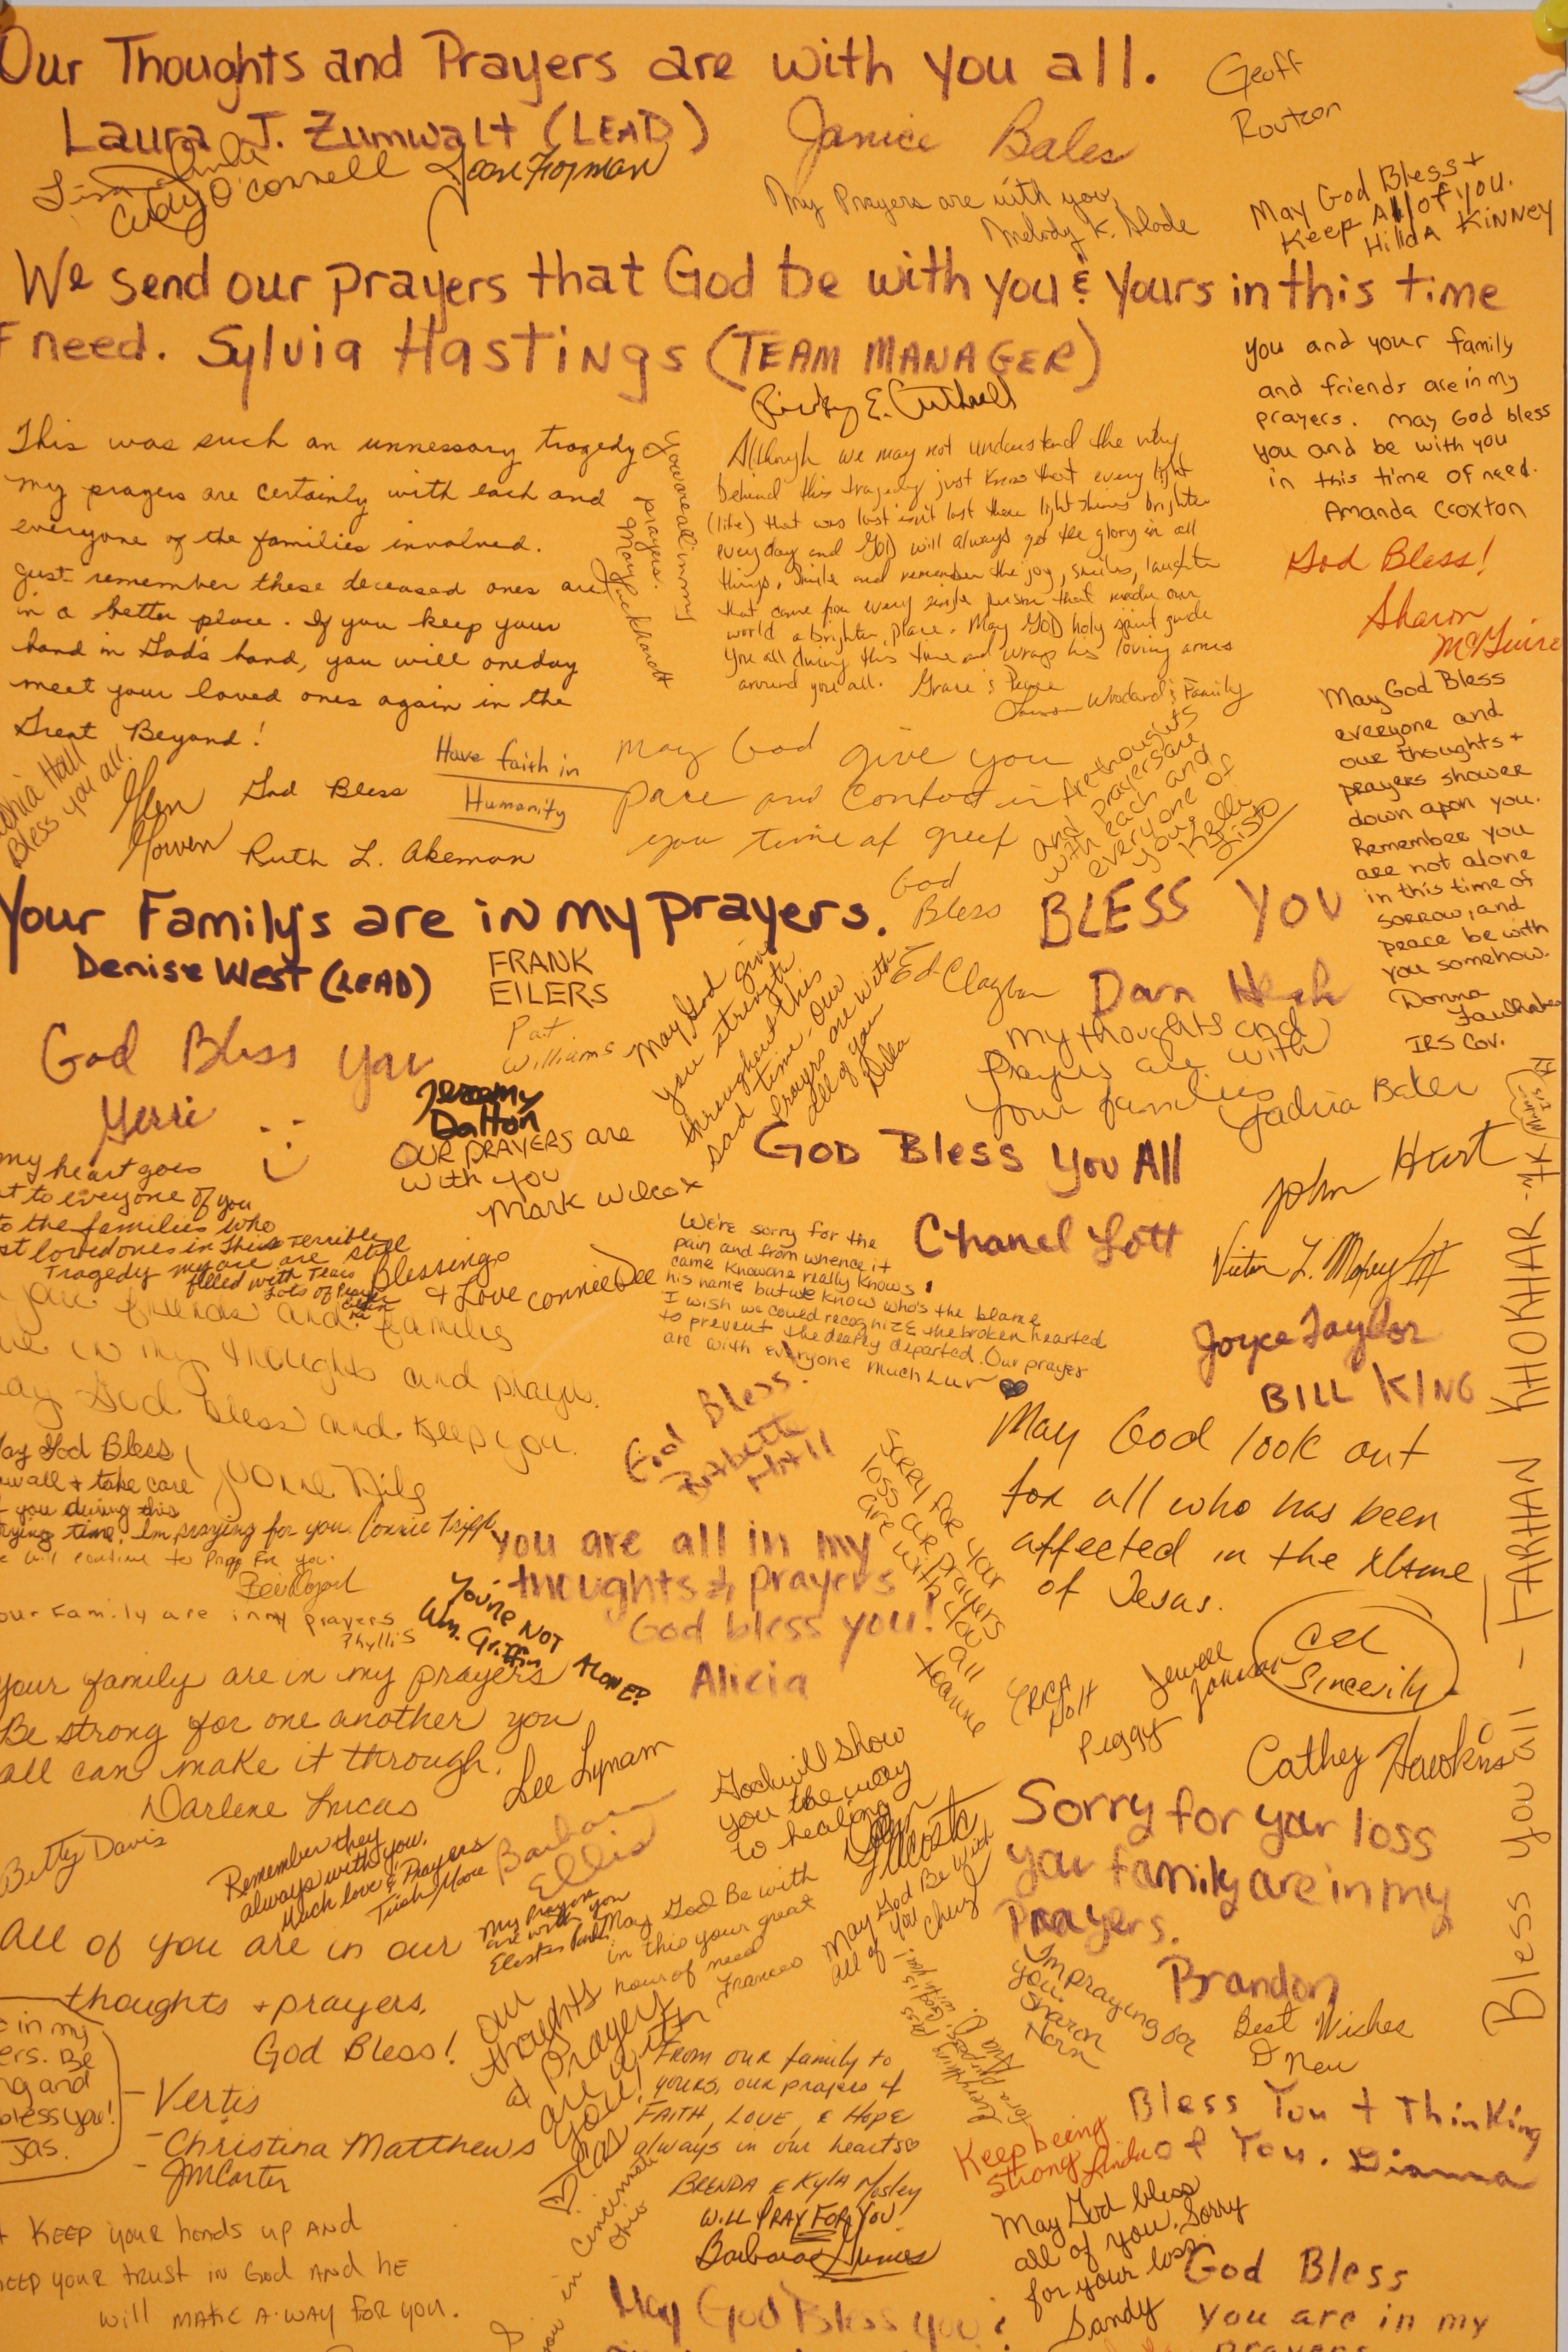 Our Thoughts and Prayers are with you all.
Laura J. Zumwalt (LEAD)
Janice Bales
Geoff
Routzon
Cindy O'Connell
My Prayers are with you,
Melody K. Slade
May God Bless +
Keep All of you.
HildA KiNNEY
We send our prayers that God be with you & yours in this time
F need. Sylvia Hastings (TEAM MANAGER)
you and your family
and friends are in my
prayers. May God bless
you and be with you
in this time of need.
Amanda Croxton
This was such an unnessary tragedy
my prayers are certainly with each and
everyone of the families involved.
Just remember these deceased ones are
in a better place. If you keep your
hand in God's hand, you will oneday
meet your loved ones again in the
Great Beyond!
You are all in my
prayers.
Mary Luckhardt
Although we may not understand the why
behind this tragedy just know that every light
(life) that was lost isn't lost there light shines brighter
everyday and GOD will always get the glory in all
things. Smile and remember the joy, smiles, laughter
that came from every single person that made our
world a brighter place. May GOD holy spirit guide
you all during this time and wrap his loving arms
around you all. Grace & Peace
Woodard & Family
God Bless!
Sharon
McGuire
May God Bless
everyone and
our thoughts +
prayers shower
down upon you.
Remember you
are not alone
in this time of
sorrow, and
peace be with
you somehow.
Donna
IRS Cov.
Hall
Bless you all.
Glen
Gowen
God Bless
Ruth L. Akeman
Have faith in
Humanity
May God give you
pace and comfort in
you time of greef
thoughts
and prayers are
with each and
everyone of
you.
Kelli
Sisto
Your Family's are in my prayers.
Denise West (LEAD)
FRANK
EILERS
Pat
Williams
God
Bless
Ed Clayton
BLESS YOU
May God give
you strength
throughout this
sad time. Our
prayers are with
all of you
Della
My thoughts and
Prayers are with
your families
Baker
God Bless you
Gerri
Jeremy
Dalton
OUR PRAYERS are
with you
Mark Wilcox
GOD Bless You All
Chanel Lott
John Hurt
Victor L. Mapey III
Joyce Taylor
BILL KING
my heart goes
t to everyone of you
to the families who
st loved ones in this terrible
Tragedy my are still
filled with Tears
Blessings
+ Love Connie Dee
We're sorry for the
pain and from whence it
came knowone really knows
his name but we know who's the blame
I wish we could recognize the broken hearted
to prevent the dearly departed. Our prayer
are with everyone Much Luv
friends and families
in my thoughts and prayers.
ay God bless and keep you.
ay God Bless
ou all + take care
you during this
rying time. Im praying for you. Connie Tripp
will continue to pray for you.
our Family are in my prayers
Phyllis
God Bless!
May God look out
for all who has been
affected in the Name
of Jesas.
Sincerily
You are all in my
thoughts & prayers
God bless you!
Alicia
Sorry for your
loss our prayers
are with you
all
Joanne
You're NOT ALONE!
Wm. Griffin
Your family are in my prayers
Be strong for one another you
all can make it through.
Darlene Lucas
Lee Lynam
ERICA
Holt
Peggy
Jewell
Johnson
Cathey Hawkins
Bless you all - FARHAN KHOKHAR
Betty Davis
Remember they
always with you.
Much love & Prayers
Trish Moore
Barbara
Ellis
God will show
you the way
to healing
My prayers
are with you
May God Be with
in this your great
hour of need
Frances
May God Be with
all of you
Cheryl
Sorry for your loss
your family are in my
Prayers.
Brandon
All of you are in our
thoughts + prayers.
God Bless!
Vertis
Christina Matthews
JMCarter
e in my
ers. Be
ng and
bless you!
Jas.
Our
thoughts
& prayers
are with
you!
From our family to
yours, our prayers &
FAITH, LOVE, & HOPE
always in our hearts
BRENDA & Kyla Mosley
Im praying for
you
Sharon
Horn
Best Wishes
D New
Everything
for a purpose.
Keep being
strong Linda
Bless You + Thinking
of You. Dianna
in Cincinnati
Ohio
WiLL PRAY FOR YOU
Barbara Grimes
May God bless
all of you. Sorry
for your loss.
Sandy
KEEP your hands up AND
KEEP your trust in God AND HE
will make A way for you.
May God Bless you
God Bless
you are in my
prayers